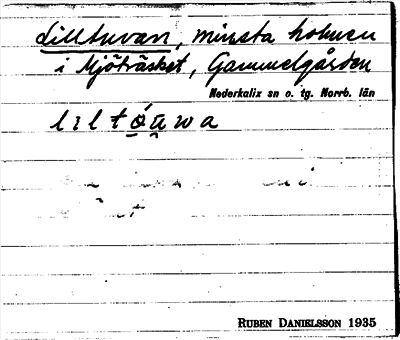 Lilltuvan, minsta holmen
i Mjöträsket, Gammelgården
Nederkalix sn o. tg. Norrb. län
lıltóu̯wa
RUBEN DANIELSSON 1935